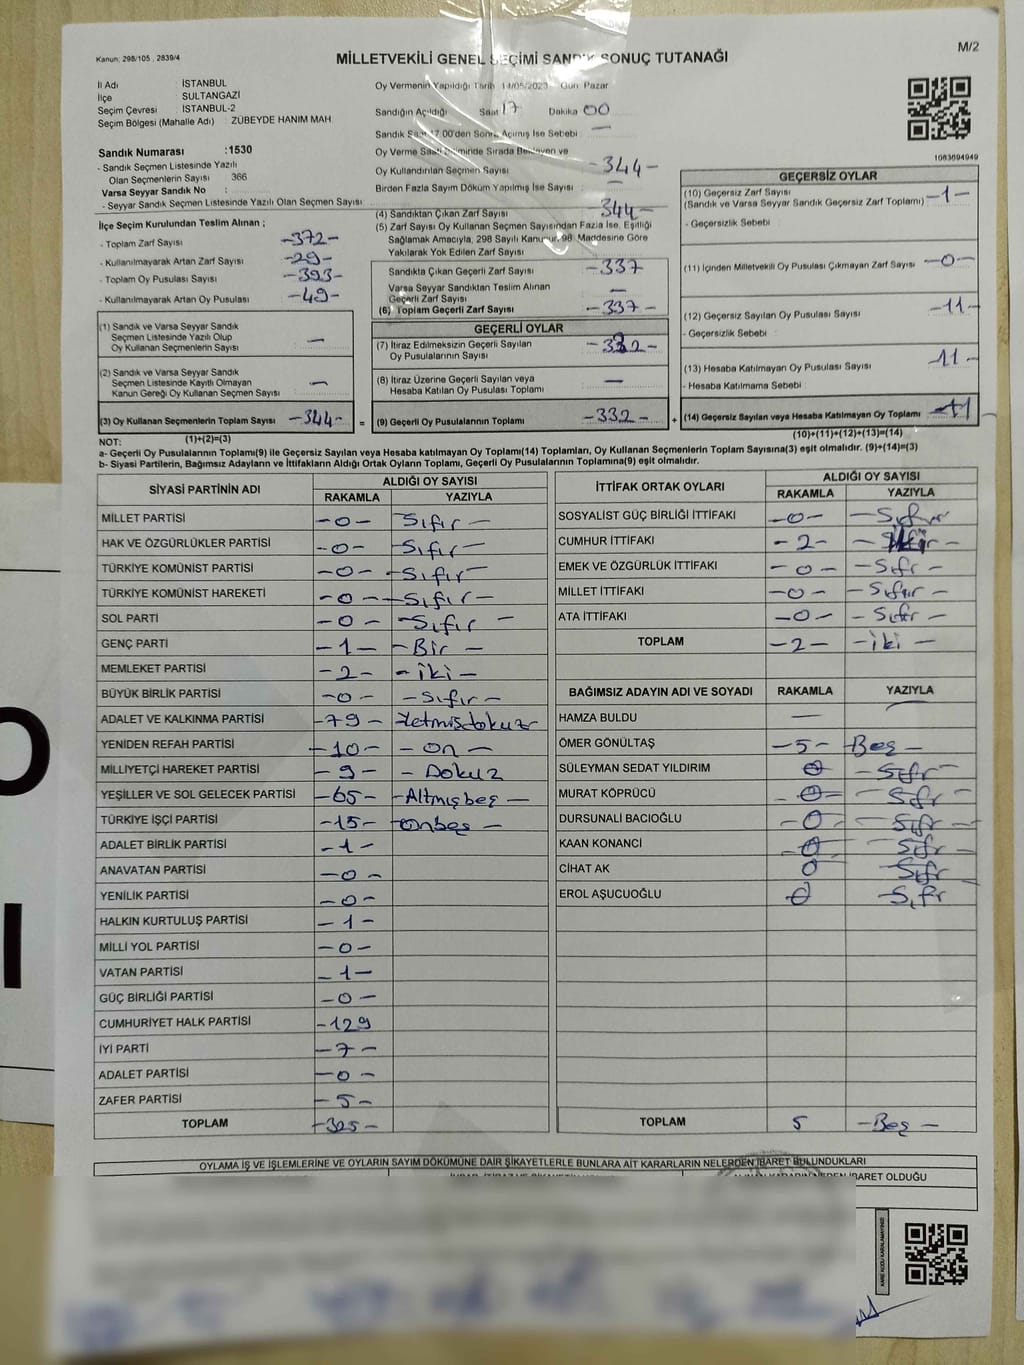 M/2
Kanun, 298/105 , 2839/4
MİLLETVEKİLİ GENEL SEÇİMİ SANDIK SONUÇ TUTANAĞI
İl Adı : İSTANBUL
İlçe : SULTANGAZİ
Seçim Çevresi : İSTANBUL-2
Seçim Bölgesi (Mahalle Adı) : ZÜBEYDE HANIM MAH.
Sandık Numarası :1530
- Sandık Seçmen Listesinde Yazılı
Olan Seçmenlerin Sayısı : 366
Varsa Seyyar Sandık No :
- Seyyar Sandık Seçmen Listesinde Yazılı Olan Seçmen Sayısı :
Oy Vermenin Yapıldığı Tarih 14/05/2023 Gün Pazar
Sandığın Açıldığı Saat 17 Dakika 00
Sandık Saat 17.00'den Sonra Açılmış İse Sebebi : —
Oy Verme Saati Bitiminde Sırada Bekleyen ve
Oy Kullandırılan Seçmen Sayısı -344-
Birden Fazla Sayım Döküm Yapılmış İse Sayısı : —
1083694949
İlçe Seçim Kurulundan Teslim Alınan ;
- Toplam Zarf Sayısı -372-
- Kullanılmayarak Artan Zarf Sayısı -29-
- Toplam Oy Pusulası Sayısı -393-
- Kullanılmayarak Artan Oy Pusulası -49-
(1) Sandık ve Varsa Seyyar Sandık
Seçmen Listesinde Yazılı Olup
Oy Kullanan Seçmenlerin Sayısı —
(2) Sandık ve Varsa Seyyar Sandık
Seçmen Listesinde Kayıtlı Olmayan
Kanun Gereği Oy Kullanan Seçmen Sayısı —
(3) Oy Kullanan Seçmenlerin Toplam Sayısı -344-
(4) Sandıktan Çıkan Zarf Sayısı 344-
(5) Zarf Sayısı Oy Kullanan Seçmen Sayısından Fazla İse, Eşitliği
Sağlamak Amacıyla, 298 Sayılı Kanunun 98. Maddesine Göre
Yakılarak Yok Edilen Zarf Sayısı
Sandıkta Çıkan Geçerli Zarf Sayısı -337
Varsa Seyyar Sandıktan Teslim Alınan
Geçerli Zarf Sayısı —
(6) Toplam Geçerli Zarf Sayısı -337-
GEÇERLİ OYLAR
(7) İtiraz Edilmeksizin Geçerli Sayılan
Oy Pusulalarının Sayısı -332-
(8) İtiraz Üzerine Geçerli Sayılan veya
Hesaba Katılan Oy Pusulası Toplamı —
= (9) Geçerli Oy Pusulalarının Toplamı -332-
GEÇERSİZ OYLAR
(10) Geçersiz Zarf Sayısı
(Sandık ve Varsa Seyyar Sandık Geçersiz Zarf Toplamı) -1-
- Geçersizlik Sebebi :
(11) İçinden Milletvekili Oy Pusulası Çıkmayan Zarf Sayısı -0-
(12) Geçersiz Sayılan Oy Pusulası Sayısı -11-
- Geçersizlik Sebebi :
(13) Hesaba Katılmayan Oy Pusulası Sayısı 11-
- Hesaba Katılmama Sebebi :
+ (14) Geçersiz Sayılan veya Hesaba Katılmayan Oy Toplamı
NOT: (1)+(2)=(3)
(10)+(11)+(12)+(13)=(14)
a- Geçerli Oy Pusulalarının Toplamı(9) ile Geçersiz Sayılan veya Hesaba katılmayan Oy Toplamı(14) Toplamları, Oy Kullanan Seçmenlerin Toplam Sayısına(3) eşit olmalıdır. (9)+(14)=(3)
b- Siyasi Partilerin, Bağımsız Adayların ve İttifakların Aldığı Ortak Oyların Toplamı, Geçerli Oy Pusulalarının Toplamına(9) eşit olmalıdır.
SİYASİ PARTİNİN ADI ALDIĞI OY SAYISI
RAKAMLA YAZIYLA
MİLLET PARTİSİ -0- Sıfır -
HAK VE ÖZGÜRLÜKLER PARTİSİ -0- -Sıfır -
TÜRKİYE KOMÜNİST PARTİSİ -0- -Sıfır-
TÜRKİYE KOMÜNİST HAREKETİ -0- -Sıfır-
SOL PARTİ -0- -Sıfır -
GENÇ PARTİ -1- -Bir -
MEMLEKET PARTİSİ -2- -iki-
BÜYÜK BİRLİK PARTİSİ -0- -Sıfır-
ADALET VE KALKINMA PARTİSİ -79- Yetmişdokuz
YENİDEN REFAH PARTİSİ -10- -On-
MİLLİYETÇİ HAREKET PARTİSİ -9- -Dokuz
YEŞİLLER VE SOL GELECEK PARTİSİ -65- -Altmışbeş-
TÜRKİYE İŞÇİ PARTİSİ -15- -Onbeş-
ADALET BİRLİK PARTİSİ -1-
ANAVATAN PARTİSİ -0-
YENİLİK PARTİSİ -0-
HALKIN KURTULUŞ PARTİSİ -1-
MİLLİ YOL PARTİSİ -0-
VATAN PARTİSİ -1-
GÜÇ BİRLİĞİ PARTİSİ -0-
CUMHURİYET HALK PARTİSİ -129
İYİ PARTİ -7-
ADALET PARTİSİ -0-
ZAFER PARTİSİ -5-
TOPLAM -325-
İTTİFAK ORTAK OYLARI ALDIĞI OY SAYISI
RAKAMLA YAZIYLA
SOSYALİST GÜÇ BİRLİĞİ İTTİFAKI -0- -Sıfır
CUMHUR İTTİFAKI -2-
EMEK VE ÖZGÜRLÜK İTTİFAKI -0- -Sıfr-
MİLLET İTTİFAKI -0- -Sıfır-
ATA İTTİFAKI -0- -Sıfr-
TOPLAM -2- -iki-
BAĞIMSIZ ADAYIN ADI VE SOYADI RAKAMLA YAZIYLA
HAMZA BULDU —
ÖMER GÖNÜLTAŞ -5- -Beş-
SÜLEYMAN SEDAT YILDIRIM 0 -Sıfr-
MURAT KÖPRÜCÜ -0- -Sıfr-
DURSUNALİ BACIOĞLU -0- -Sıfr-
KAAN KONANCİ -0- -Sıfr-
CİHAT AK 0 Sıfr
EROL AŞUCUOĞLU 0 -Sıfr
TOPLAM 5 -Beş-
OYLAMA İŞ VE İŞLEMLERİNE VE OYLARIN SAYIM DÖKÜMÜNE DAİR ŞİKAYETLERLE BUNLARA AİT KARARLARIN NELERDEN İBARET BULUNDUKLARI
ALINAN KARARIN NEDEN İBARET OLDUĞU
KARE KODU KARALAMAYINIZ!